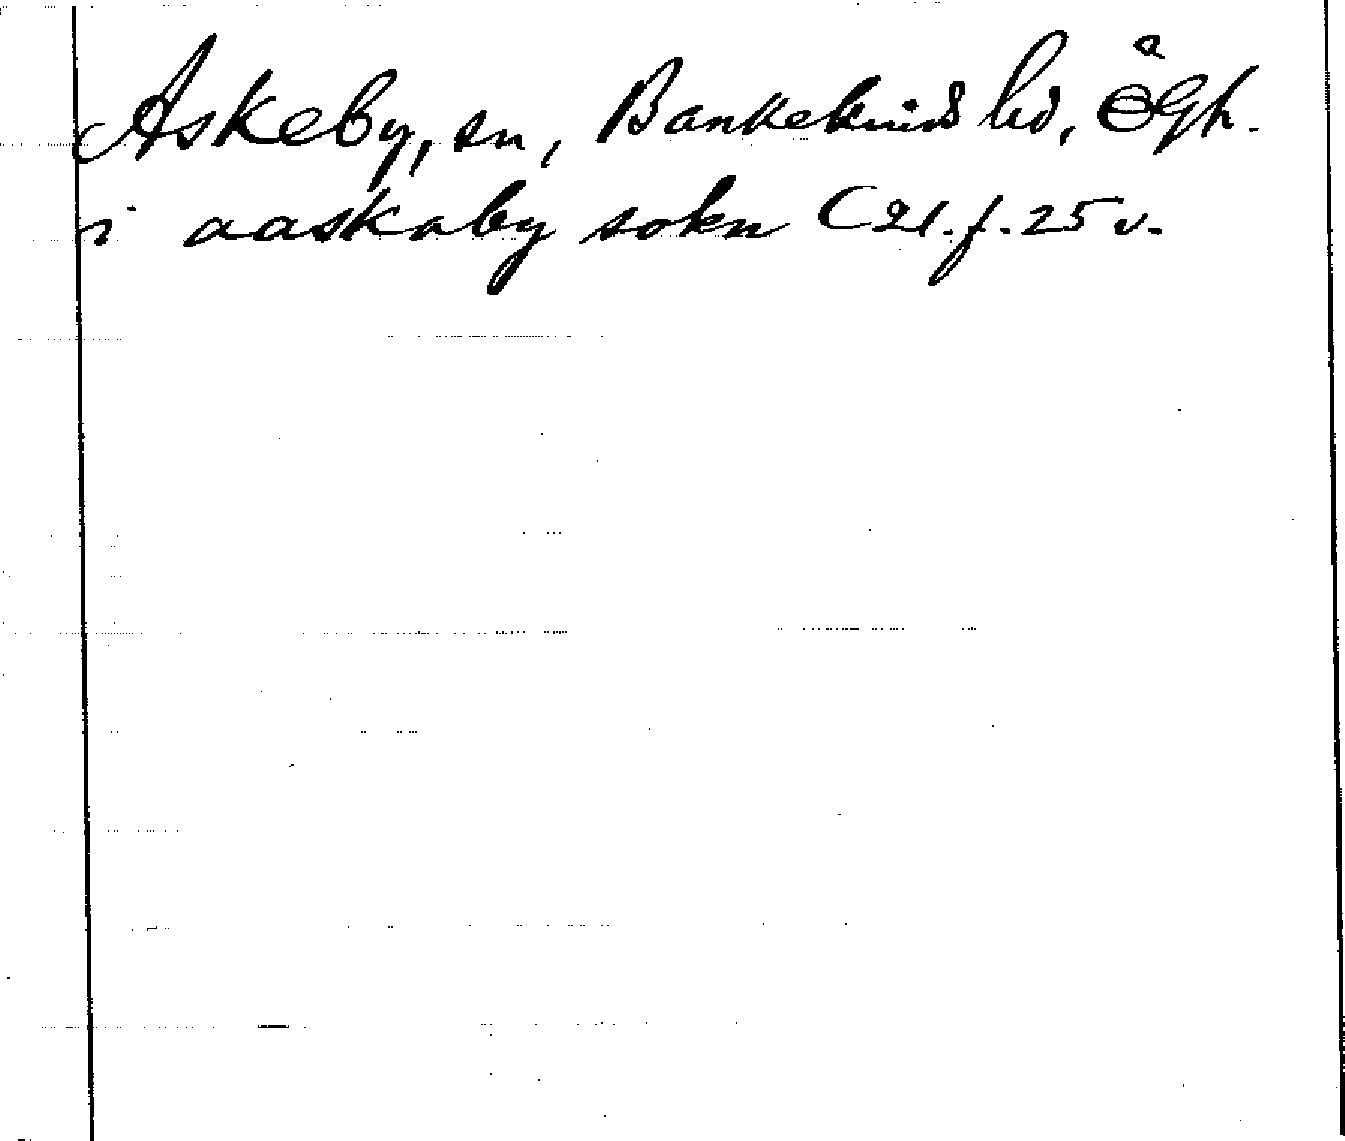 Askeby, sn, Bankekinds hd, Ögtl.
i aaskaby sokn C 21. f. 25 v.